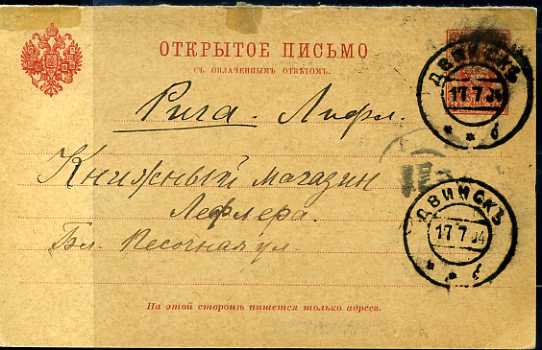 ОТКРЫТОЕ ПИСЬМО
СЪ ОПЛАЧЕННЫМЪ ОТВѢТОМЪ.
ДВИНСКЪ
17 7 04
б
Рига. Лифл.
Книжный магазин
Лефлера.
Бл. Песочная ул.
ДВИНСКЪ
17 7 04
б
На этой сторонѣ пишется только адресъ.